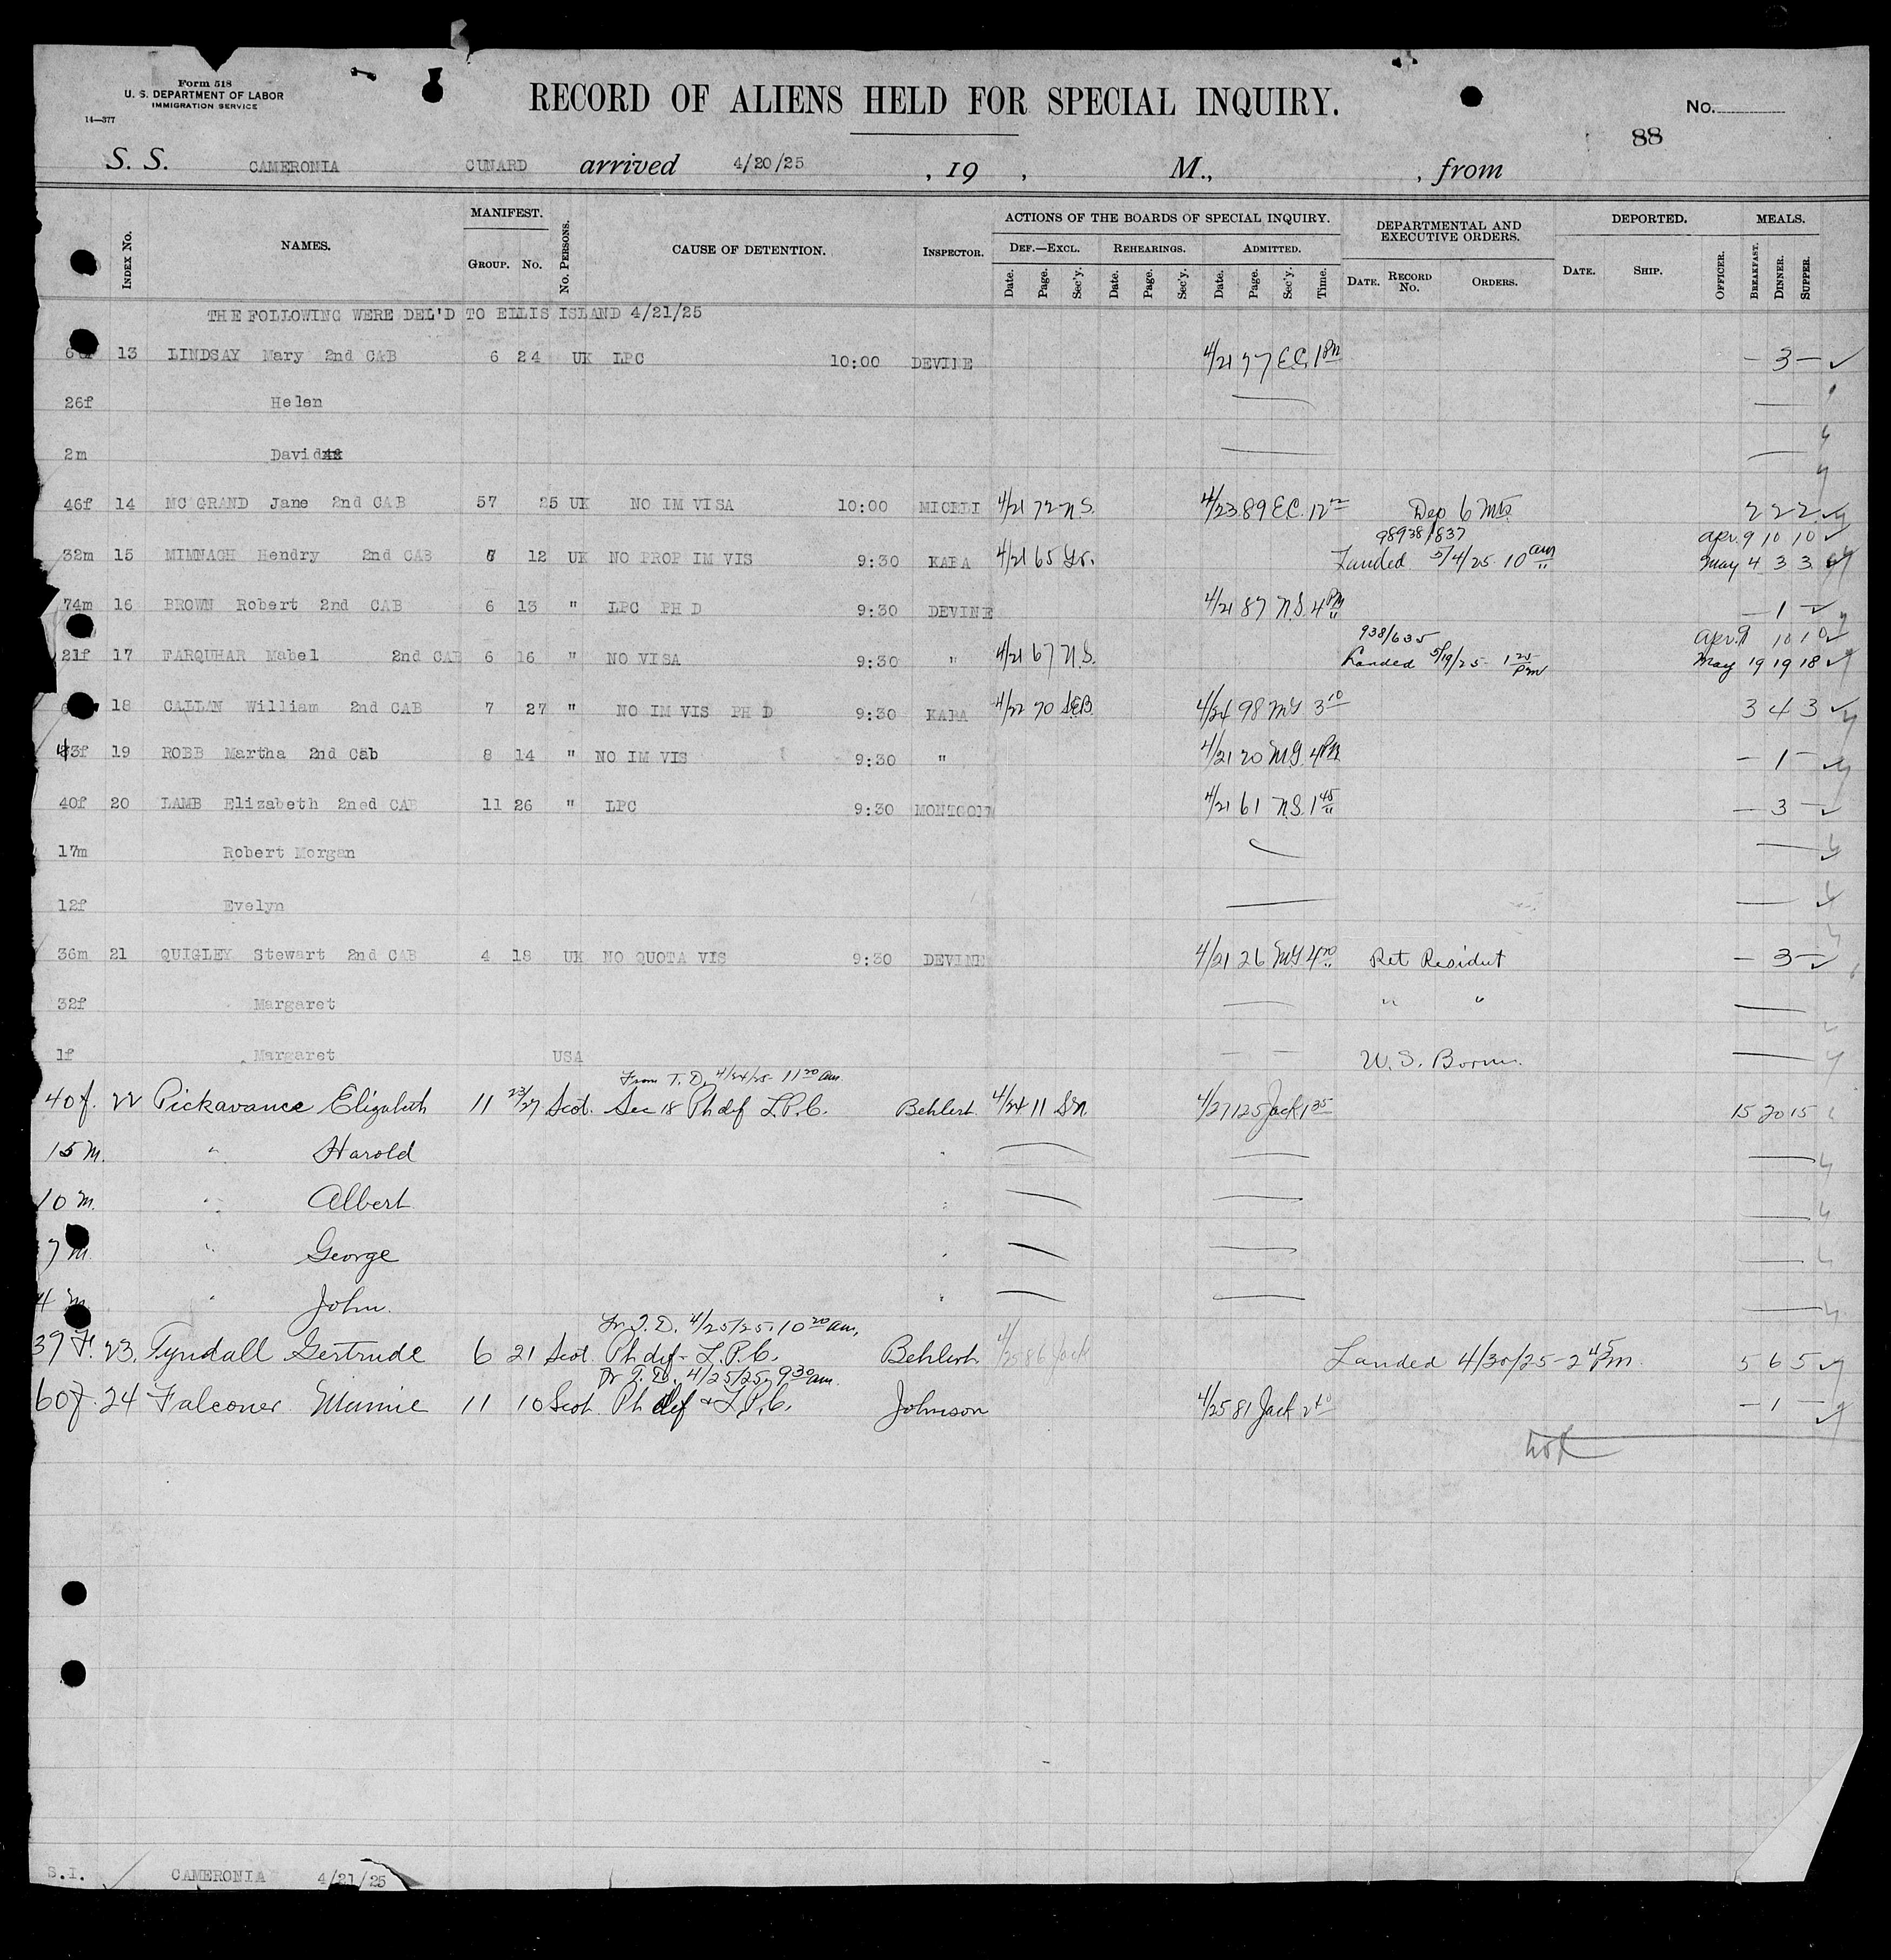 Form 518
U. S. DEPARTMENT OF LABOR
IMMIGRATION SERVICE
14—377
RECORD OF ALIENS HELD FOR SPECIAL INQUIRY.
No.
88
S. S. CAMERONIA CUNARD arrived 4/20/25 , 19 , M., , from
MANIFEST. ACTIONS OF THE BOARDS OF SPECIAL INQUIRY. DEPARTMENTAL AND EXECUTIVE ORDERS. DEPORTED. MEALS.
Index No. NAMES. GROUP. No. No. PERSONS. CAUSE OF DETENTION. INSPECTOR. DEF.—EXCL. REHEARINGS. ADMITTED.
Date. Page. Sec'y. Date. Page. Sec'y. Date. Page. Sec'y. Time. DATE. RECORD No. ORDERS. DATE. SHIP. OFFICER. BREAKFAST. DINNER. SUPPER.
THE FOLLOWING WERE DEL'D TO ELLIS ISLAND 4/21/25
13 LINDSAY Mary 2nd CAB 6 24 UK LPC 10:00 DEVINE 4/21 77 E.C. — 3 —
26f Helen
2m David
46f 14 MC GRAND Jane 2nd CAB 57 25 UK NO IM VISA 10:00 4/21 72 N.S. 4/23 89 E.C. 12 Dep 6 Mts. 2 2 2
98938/837 Apr. 9 10 10
32m 15 MIMNAGH Hendry 2nd CAB 12 UK NO PROP IM VIS 9:30 KABA 4/21 65 Landed 5/4/25 10 am May 4 3 3
74m 16 BROWN Robert 2nd CAB 6 13 " LPC PH D 9:30 DEVINE 4/21 87 N.S. 4 PM — 1 —
938/635 Apr. 9 10 10
21f 17 FARQUHAR Mabel 2nd CAB 6 16 " NO VISA 9:30 " 4/21 67 N.S. Landed 5/19/25 1 25 PM May 19 19 18
18 CALLAN William 2nd CAB 7 27 " NO IM VIS PH D 9:30 KABA 4/22 70 S.E.B. 4/24 98 MG 3 10 3 4 3
43f 19 ROBB Martha 2nd Cab 8 14 " NO IM VIS 9:30 " 4/21 20 MG. 4 PM — 1 —
40f 20 LAMB Elizabeth 2ned CAB 11 26 " LPC 9:30 MONTGOM 4/21 61 N.S. 1 45 — 3 —
17m Robert Morgan
12f Evelyn
36m 21 QUIGLEY Stewart 2nd CAB 4 18 UK NO QUOTA VIS 9:30 DEVINE 4/21 26 MG 4 Ret Resident — 3 —
32f Margaret " "
1f Margaret USA
From T. D. 4/24/25 11 20 am.
40 f. 22 Pickavance Elizabeth 11 23/27 Scot. Sec 18 Ph def L.P.C. Behlert 4/24 11 4/27 125 Jack 1 35 15 20 15
15 m. " Harold "
10 m. " Albert "
7 m. " George "
4 m. " John. "
Fr T. D. 4/25/25. 10 20 am.
39 F. 23. Tyndall Gertrude 6 21 Scot. Ph def - L.P.C. Behlert 4/25 86 Jack Landed 4/30/25 - 2 45 PM. 5 6 5
Fr T. D. 4/25/25. 9 30 am.
60 f. 24 Falconer Minnie 11 10 Scot. Ph def + L.P.C. Johnson 4/25 81 Jack 2 40 — 1 —
S.I. CAMERONIA 4/21/25